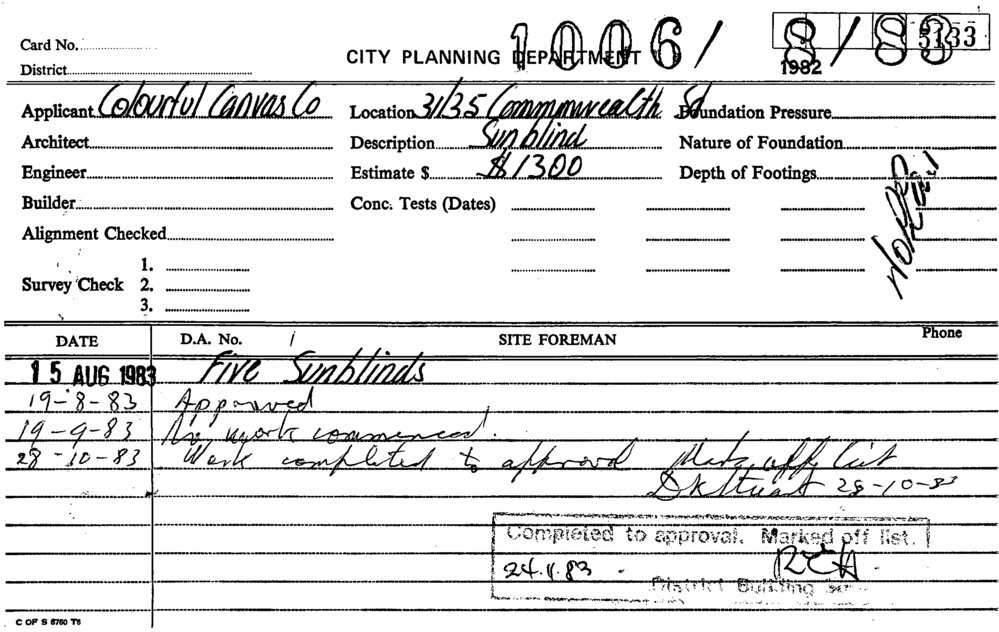 Card No.
District
CITY PLANNING DEPARTMENT
1006/ 8/83
5133
1982
Applicant Colourful Canvas Co
Location 31/35 Commonwealth Sd
Foundation Pressure
Architect
Description Sunblind
Nature of Foundation
Engineer
Estimate $ $1300
Depth of Footings
Builder
Conc. Tests (Dates)
Alignment Checked
Survey Check 1.
2.
3.
DATE D.A. No. SITE FOREMAN Phone
15 AUG 1983 Five Sunblinds
19-8-83 Approved
19-9-83 No work commenced.
28-10-83 Work completed to approval Mark off list
28-10-83
Completed to approval. Marked off list.
24.11.83 RCH
District Building
C OF S 6760 T6